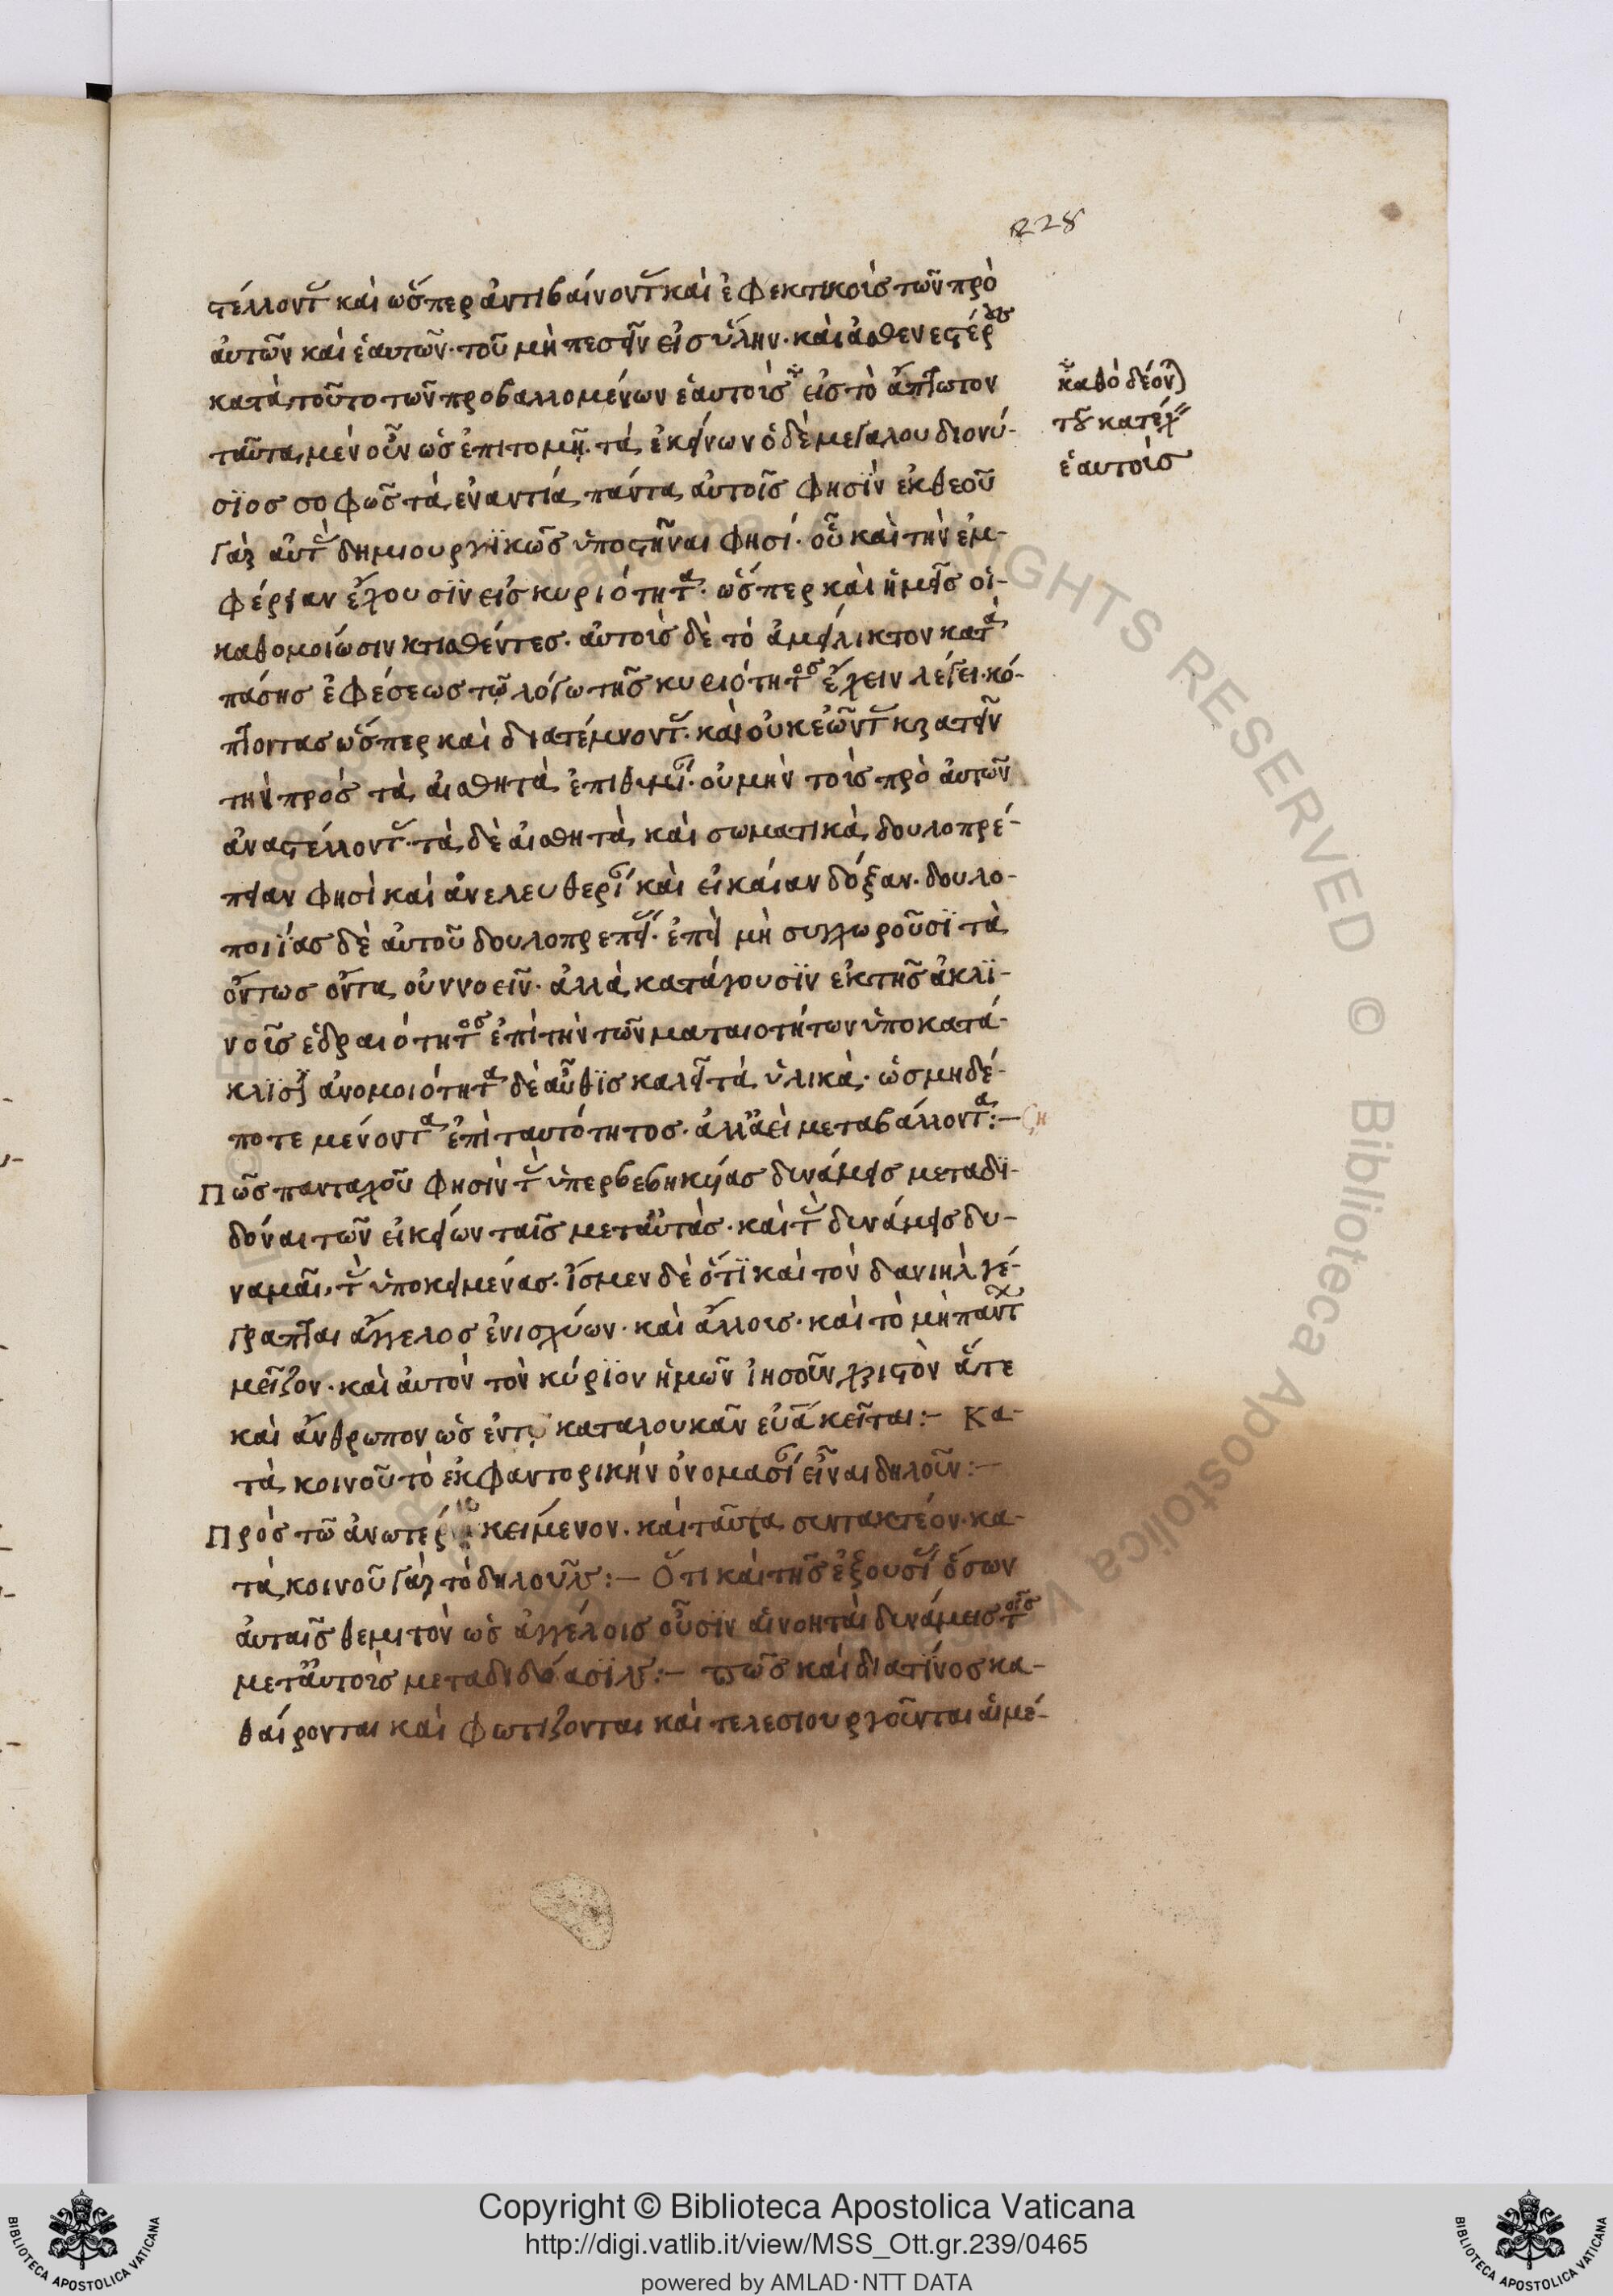 228
στέλλοντας καὶ ὥσπερ ἀντιβαίνοντας καὶ ἐφεκτικοῖς τῶν πρὸ
αὐτῶν καὶ ἑαυτῶν· τοῦ μὴ πεσεῖν εἰς ὕλην· καὶ ἀσθενεστέροις
κατὰ τοῦτο τῶν προβαλλομένων ἑαυτοῖς εἰς τὸ ἄπτωτον
καθὸ δέονται
τοῦ κατέχειν
ἑαυτοῖς
ταῦτα μὲν οὖν ὡς ἐπιτομῇ τὰ ἐκείνων ὁ δὲ μεγαλου διονύ-
σϊος σοφῶς τὰ ἐναντία πάντα αὐτοῖς φησῒν ἐκ θεοῦ
γὰρ αὐτὰς δημιουργϊκῶς ὑποστῆναι φησί· οὗ καὶ τὴν ἐμ-
φέρειαν ἔχουσϊν εἰς κυριότητα· ὥσπερ καὶ ἡμεῖς οἱ
καθομοίωσιν κτισθέντες· αὐτοῖς δὲ τὸ ἀμείλικτον κατὰ
πάσης ἐφέσεως τῷ λόγω τῆς κυριότητος ἔχειν λέγει· κό-
πτοντας ὥσπερ καὶ διατέμνοντας· καὶ οὐκ ἐῶντας κρατεῖν
τὴν πρὸς τὰ αἰσθητὰ ἐπιθυμίαν· οὐ μὴν τοῖς πρὸ αὐτῶν
ἀναστέλλοντας· τὰ δὲ αἰσθητὰ καὶ σωματικὰ δουλοπρέ-
πειαν φησὶ καὶ ἀνελευθερίαν καὶ εἰκαίαν δόξαν· δουλο-
ποιΐας δὲ αὐτοῦ δουλοπρεπεῖς· ἐπεὶ μὴ συγχωροῦσϊ τὰ
ὄντως ὄντα συννοεῖν· ἀλλὰ κατάγουσϊν ἐκ τῆς ἀκλϊ-
νοῖς ἑδραιότητος ἐπὶ τὴν τῶν ματαιοτήτων ὑποκατά-
κλϊσιν ἀνομοιότητα δὲ αὖθϊς καλεῖ τὰ ὑλικὰ· ὡς μηδέ-
ποτε μένοντα ἐπὶ ταυτότητος· ἀλλ' ἀεὶ μεταβάλλοντα:–
Πῶς πανταχοῦ φησὶν τὰς ὑπερβεβηκυίας δυνάμεις μεταδϊ-
δόναι τῶν εἰκείων ταῖς μετ' αὐτὰς· καὶ τὰς δυνάμεις δυ-
ναμοῖ τὰς ὑποκειμένας· ἴσμεν δὲ ὅτϊ καὶ τὸν δανιὴλ γέ-
γραπται ἄγγελος ἐνισχύων· καὶ ἄλλοις· καὶ τὸ μὴ πάντων
μεῖζον· καὶ αὐτὸν τὸν κύρϊον ἡμῶν ἰησοῦν χριστὸν ἅτε
καὶ ἄνθρωπον ὡς ἐν τῷ κατα λουκᾶν εὐα κεῖται:– Κα-
τὰ κοινοῦ τὸ ἐκφαντορικὴν ὀνομασίαν εἶναι δηλοῦν:–
Πρὸς τῶ ἀνωτέρω κείμενον· καὶ ταῦτα συντακτέον· κα-
τὰ κοινοῦ γὰρ τὸ δηλοῦν:– Ὅτι καὶ τῆς ἐξουσίας ὅσων
αὐταῖς θεμιτὸν ὡς ἀγγέλοις οὖσϊν αἱ νοηταὶ δυνάμεις τοῖς
μετ' αὐτοῖς μεταδιδόασϊν:– πῶς καὶ διατίνος κα-
θαίρονται καὶ φωτίζονται καὶ τελεσιουργοῦνται αἱ μέ-
Copyright © Biblioteca Apostolica Vaticana
http://digi.vatlib.it/view/MSS_Ott.gr.239/0465
powered by AMLAD·NTT DATA
BIBLIOTECA APOSTOLICA VATICANA
BIBLIOTECA APOSTOLICA VATICANA